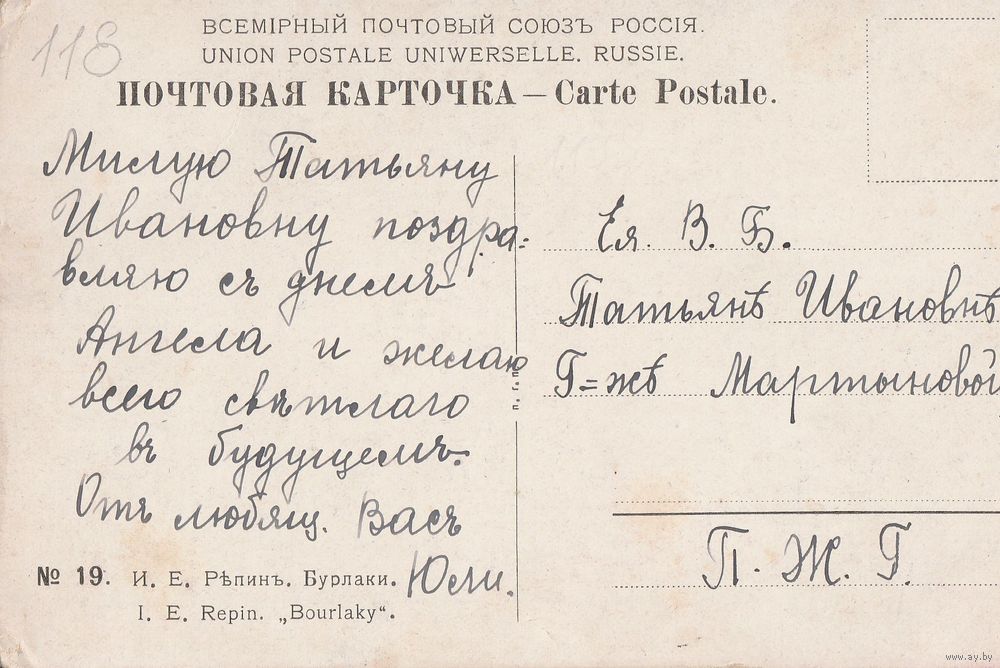 118
ВСЕМІРНЫЙ ПОЧТОВЫЙ СОЮЗЪ РОССІЯ.
UNION POSTALE UNIWERSELLE. RUSSIE.
ПОЧТОВАЯ КАРТОЧКА — Carte Postale.
Милую Татьяну
Ивановну поздра=
вляю съ днемъ
Ангела и желаю
всего свѣтлаго
въ будущемъ.
Отъ любящ. Васъ
Юли.
№ 19. И. Е. Рѣпинъ. Бурлаки.
I. E. Repin. „Bourlaky“.
Ея. В. Б.
Татьянѣ Ивановнѣ
Г=жѣ Мартыновой
П. Ж. Г.
www.ay.by